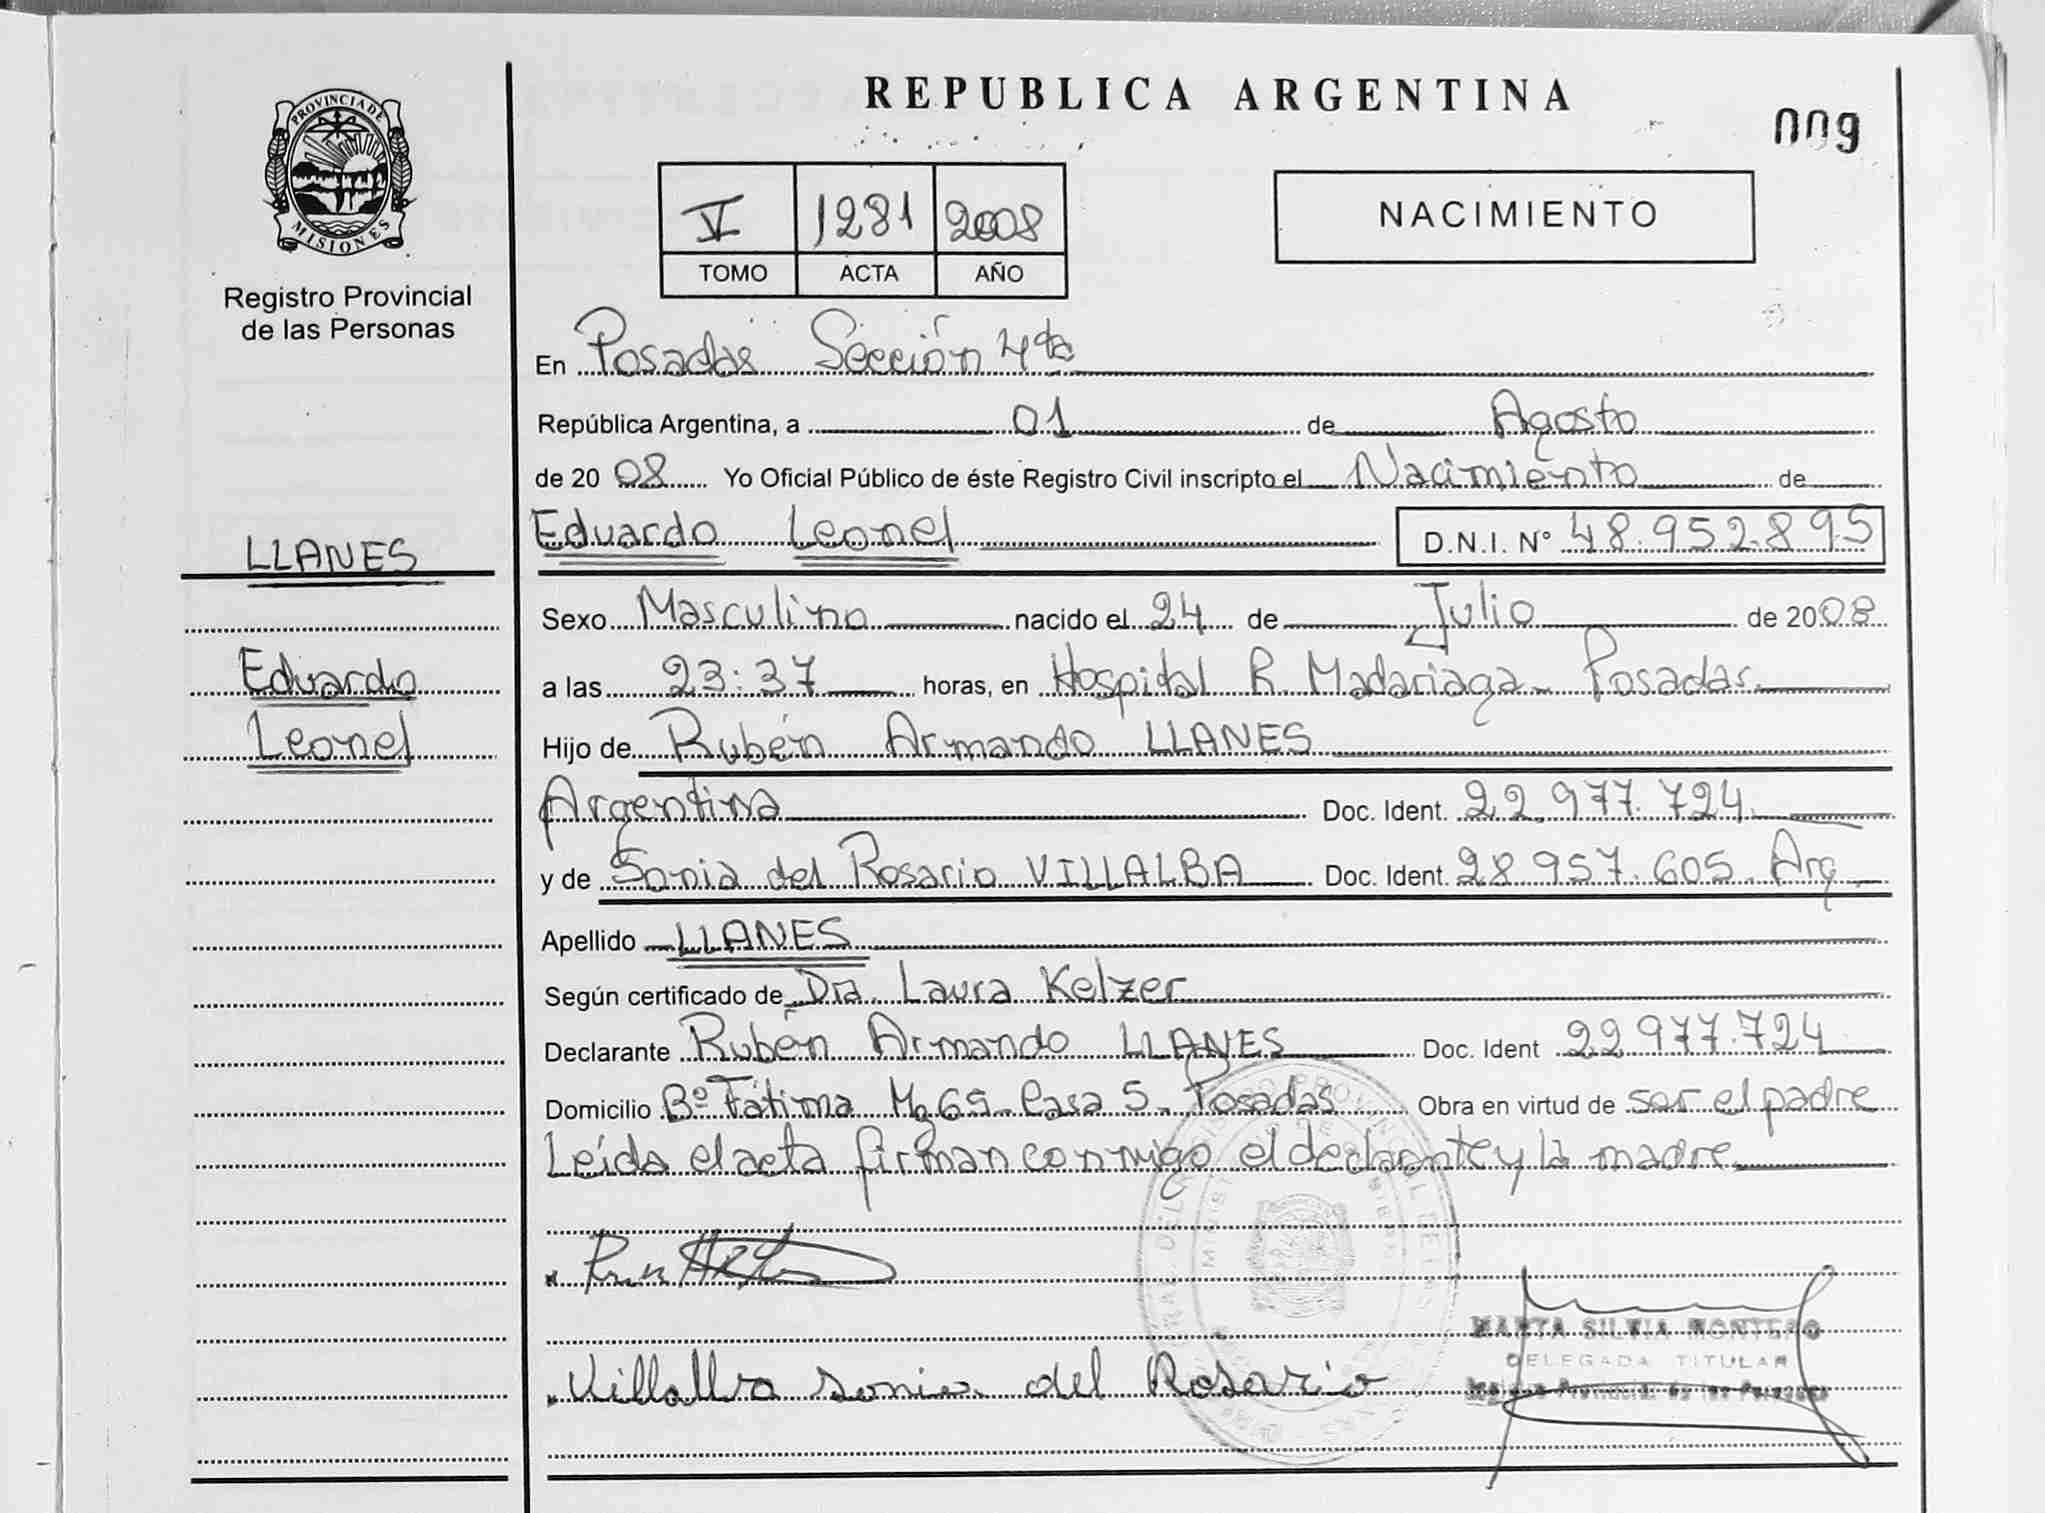 REPUBLICA ARGENTINA
009
PROVINCIA DE
MISIONES
Registro Provincial
de las Personas
V 1281 2008
TOMO ACTA AÑO
NACIMIENTO
En Posadas Sección 4ta
República Argentina, a 01 de Agosto
de 2008 Yo Oficial Público de éste Registro Civil inscripto el Nacimiento de
LLANES
Eduardo Leonel D.N.I. N° 48.952.895
Sexo Masculino nacido el 24 de Julio de 2008
Eduardo
a las 23:37 horas, en Hospital R. Madariaga - Posadas.
Leonel
Hijo de Rubén Armando LLANES
Argentina Doc. Ident. 22.977.724.
y de Sonia del Rosario VILLALBA Doc. Ident. 28.957.605. Arg.
Apellido LLANES
Según certificado de Dra. Laura Kelzer
Declarante Rubén Armando LLANES Doc. Ident 22.977.724
Domicilio Bº Fátima Mz 69 - Casa 5 - Posadas Obra en virtud de ser el padre
Leída el acta firman conmigo el declarante y la madre
MARTA SILVIA MONTERO
DELEGADA TITULAR
Registro Provincial de las Personas
Villalba Sonia del Rosario